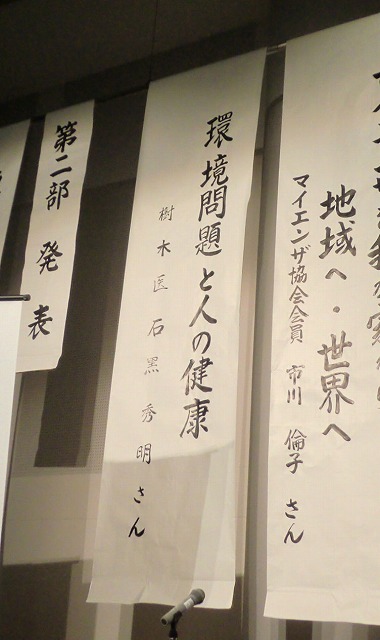 地域へ・世界へ
マイエンザ協会会員 市川 倫子 さん
環境問題と人の健康
樹木医 石黒 秀明 さん
第二部 発表